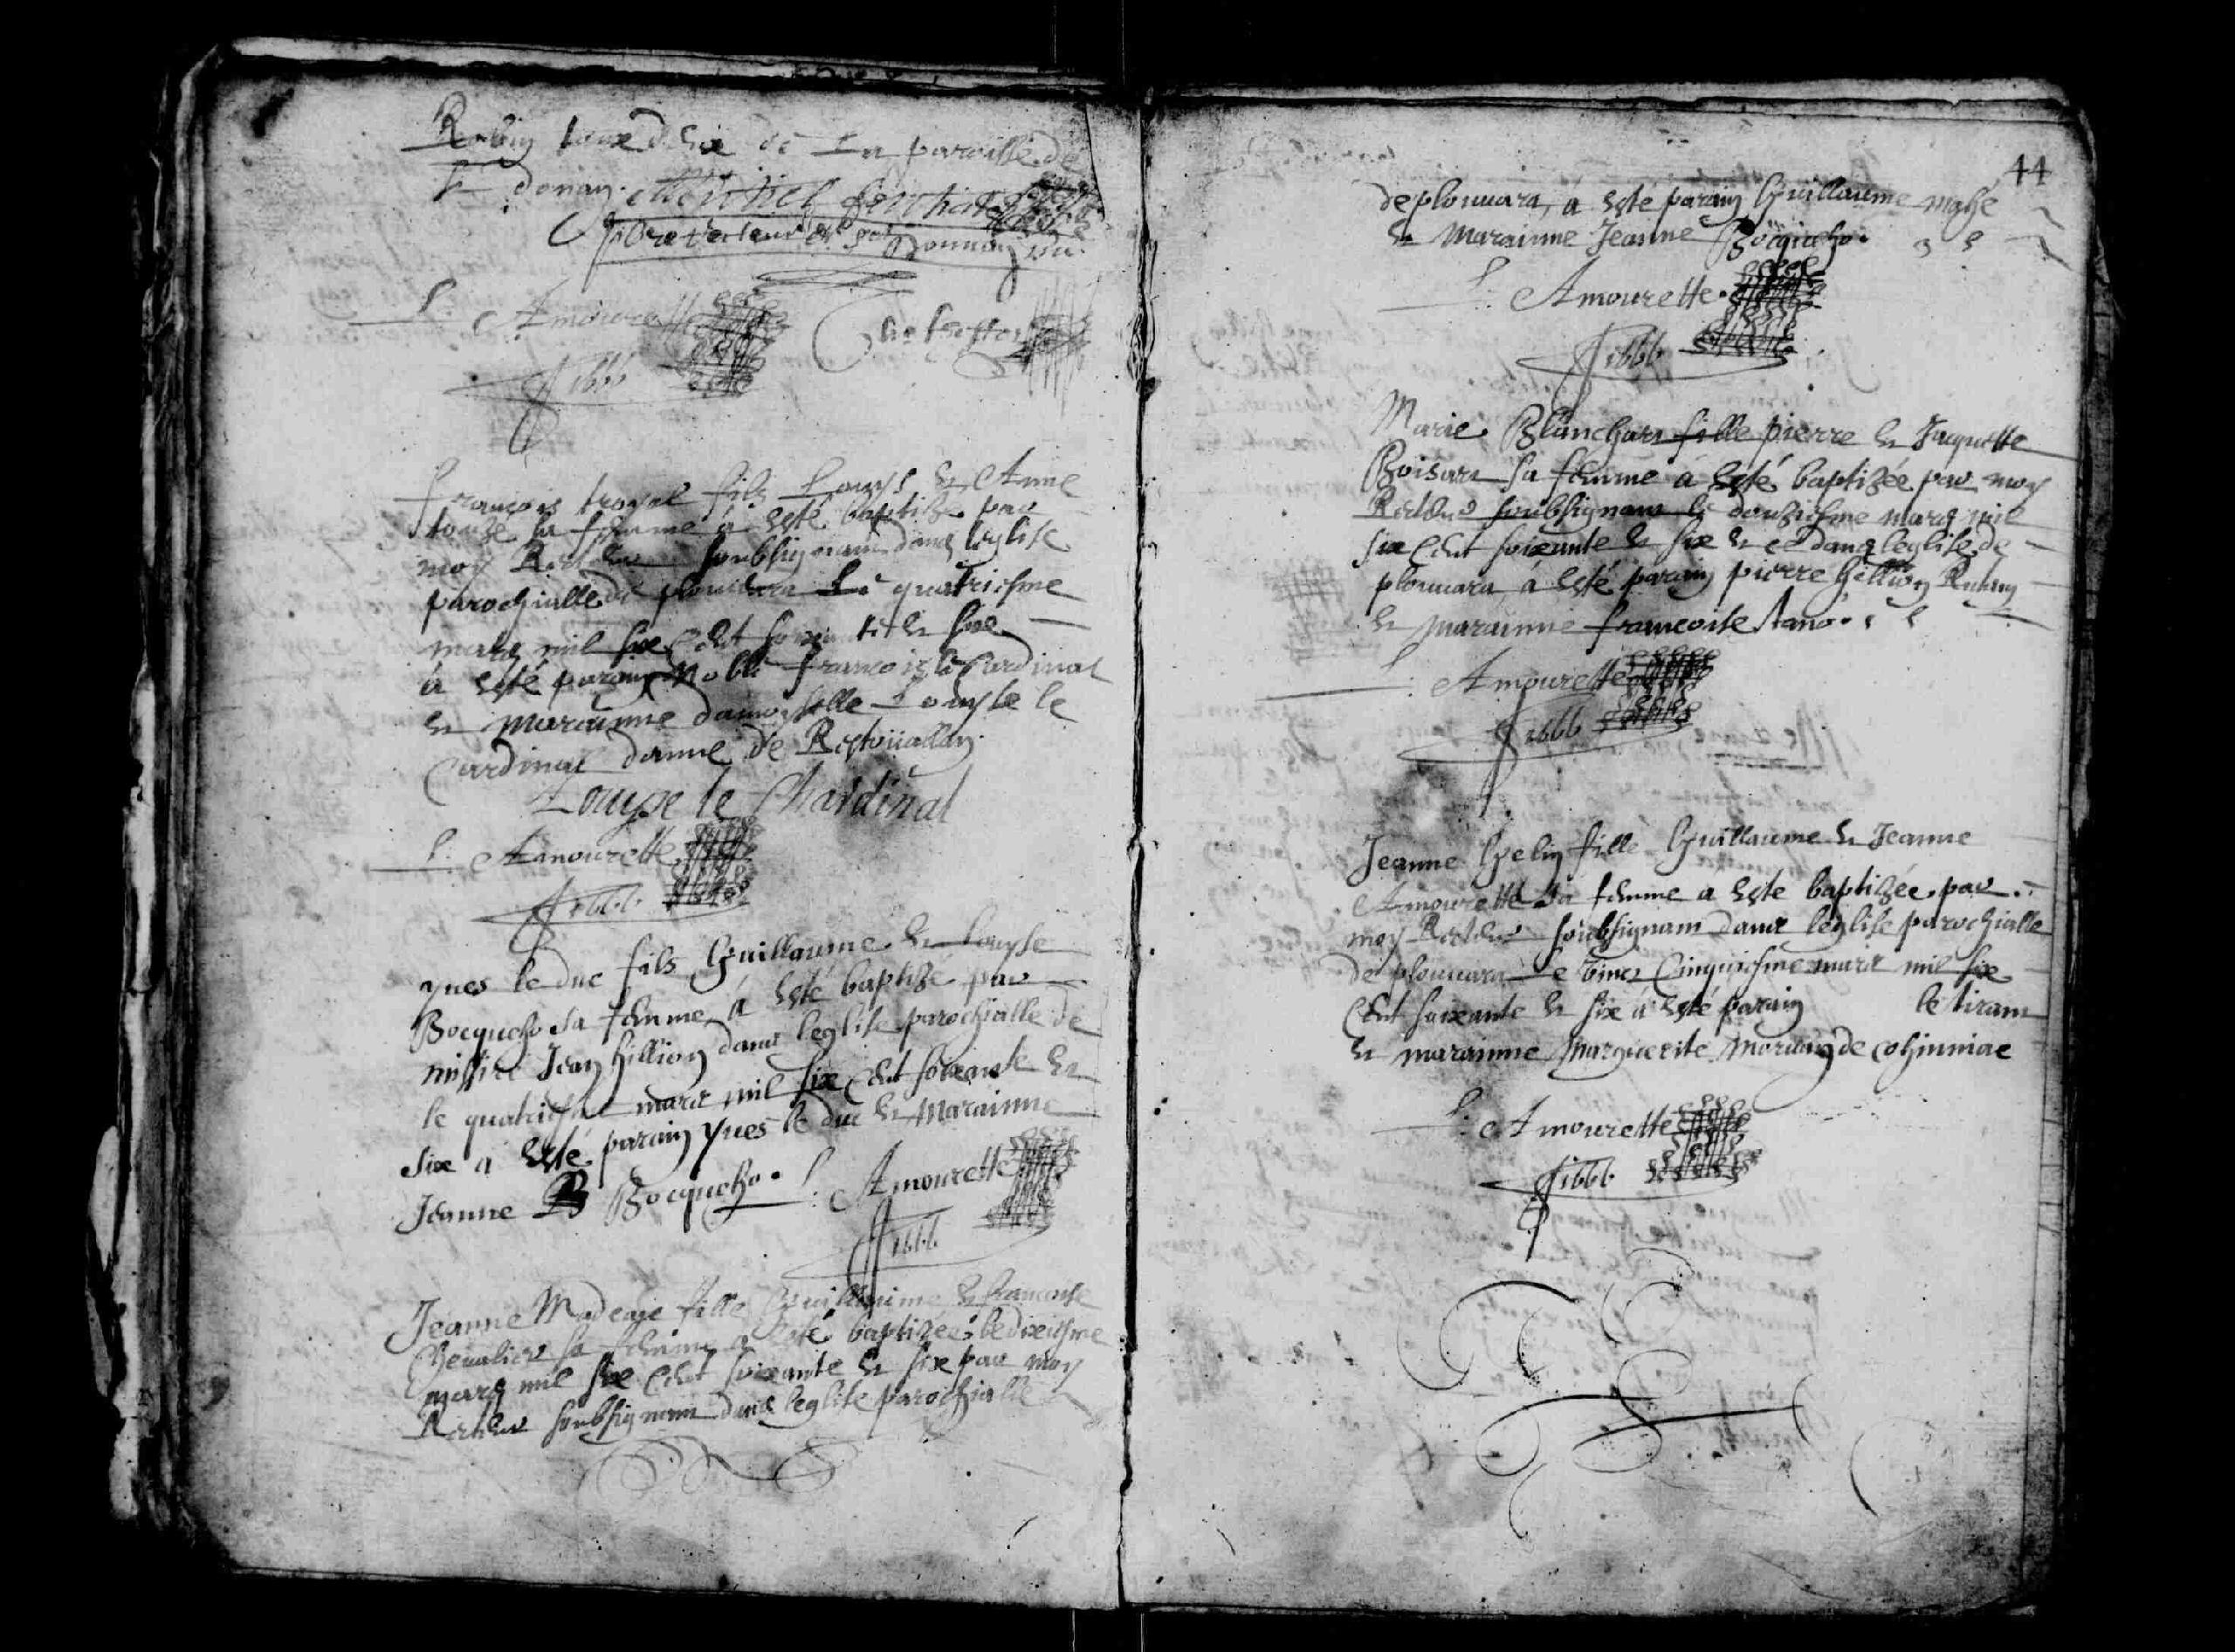 Robin tous deux de la paroisse de
St donan.
pbre recteur de St Donnan
L: Amourette
1666
françois troyal fils Louys et Anne
touze sa femme a esté baptizé par
moy Recteur soubsignant dans leglise
parochialle de plouuara Le quatriesme
mars mil six cent soixante et six
a esté parain Noble françois le Cardinal
et marainne damoyselle Louyse le
Cardinal damme de Restouallan.
Louyse le Chardinal
L: Amourette
1666
yues le duc fils Guillaume et Louyse
Bocqueho sa femme, á esté baptizé par
missire Jean hillion dans leglise parochialle de
le quatriesme mars mil six cent soixante et
six a esté parain yues le duc et Marainne
Jeanne B Bocqueho. L: Amourette
1666
Jeanne Madecaie fille Guillaume et francoise
Cheualier sa femme a esté baptizée le dixiesme
mars mil six cent soixante et six par moy
Recteur soubsignant dans leglise parochialle
44
de plouuara, a esté parain Guillaume mahé
et Marainne Jeanne Bocqueho.
L: Amourette.
1666
Marie Blanchart fille pierre et Jaquette
Boisart sa femme a esté baptizée par moy
Recteur soubsignant le douziesme mars mil
six cent soixante et six et ce dans leglise de
plouuara, a esté parain pierre hillion
et marainne francoise
L: Amourette
1666
Jeanne Gelin fille Guillaume et Jeanne
Amourette sa femme a este baptizée par
moy Recteur soubsignant dans leglise parochialle
de plouuara Le vinct Cinquiesme mars mil six
cent soixante et six a esté parain le tirant
et marainne Marguerite Moruan de cohinniac
L: Amourette
1666